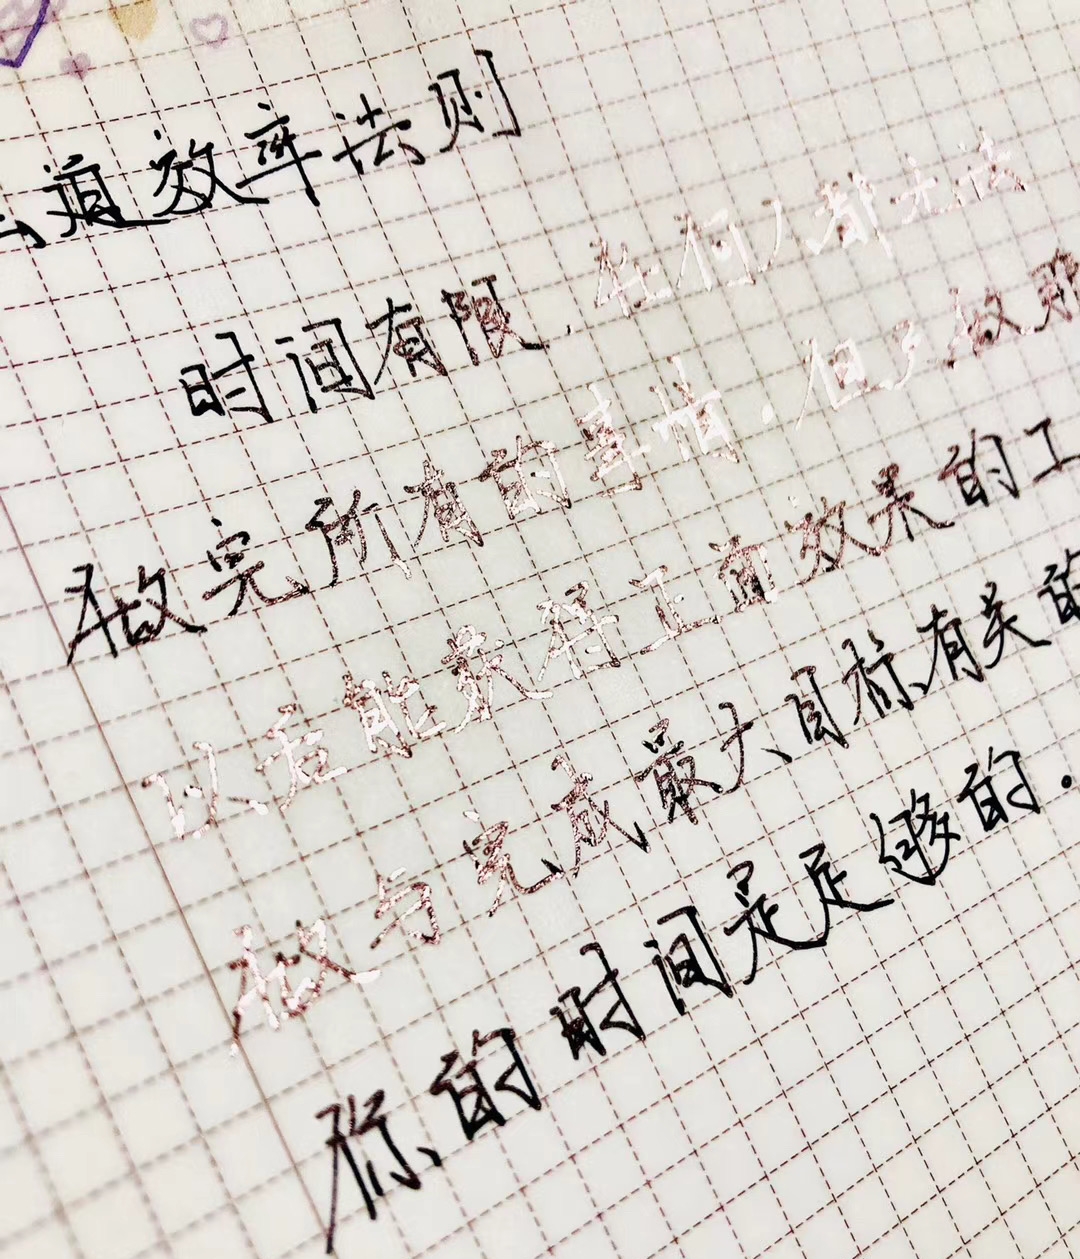 道效率法则
时间有限，任何人都无法
做完所有的事情.但只做那
以后能获得正面效果的工
做与完成最大目标有关的
你的时间是足够的.